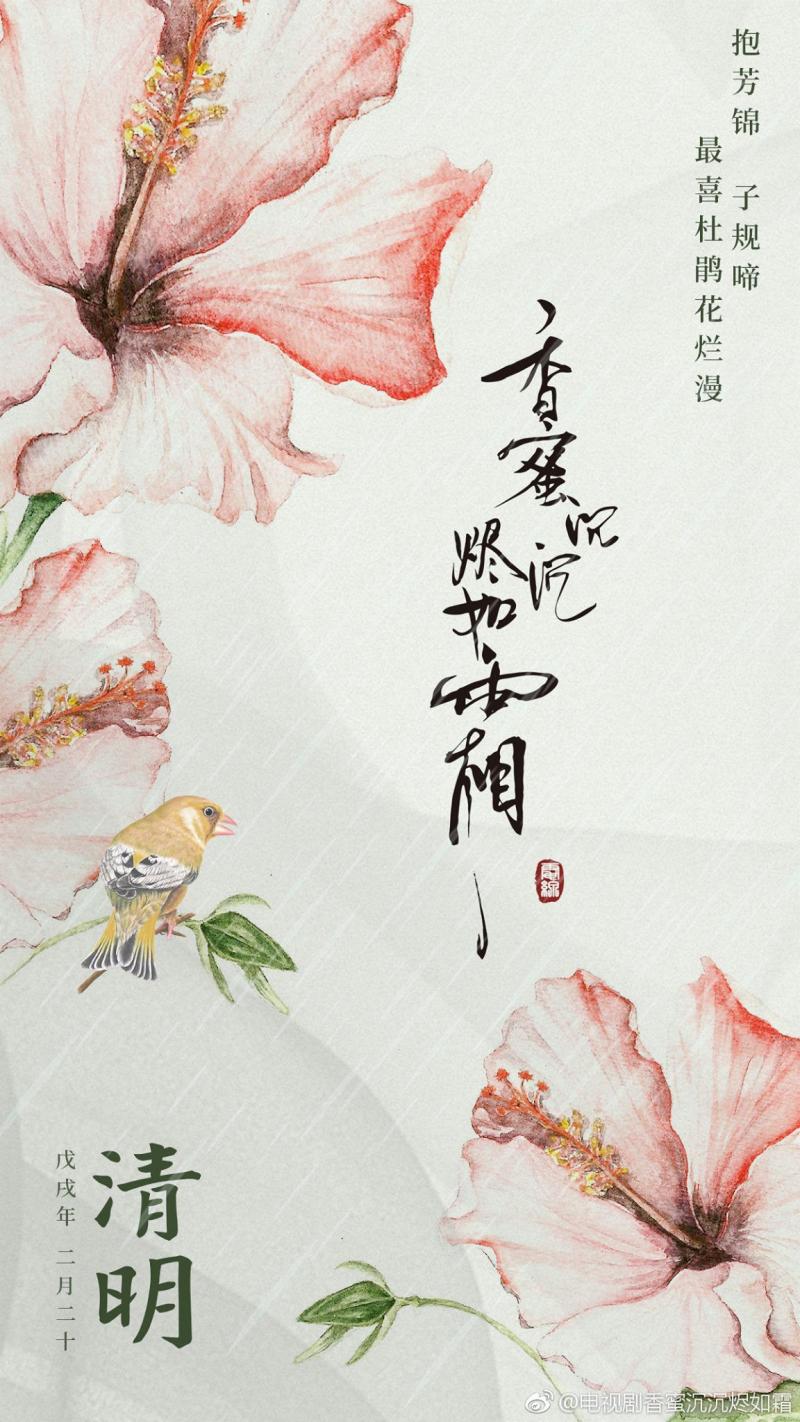 抱芳锦 子规啼
最喜杜鹃花烂漫
香蜜
沉沉
烬如霜
電線
清明
戊戌年 二月二十
@电视剧香蜜沉沉烬如霜